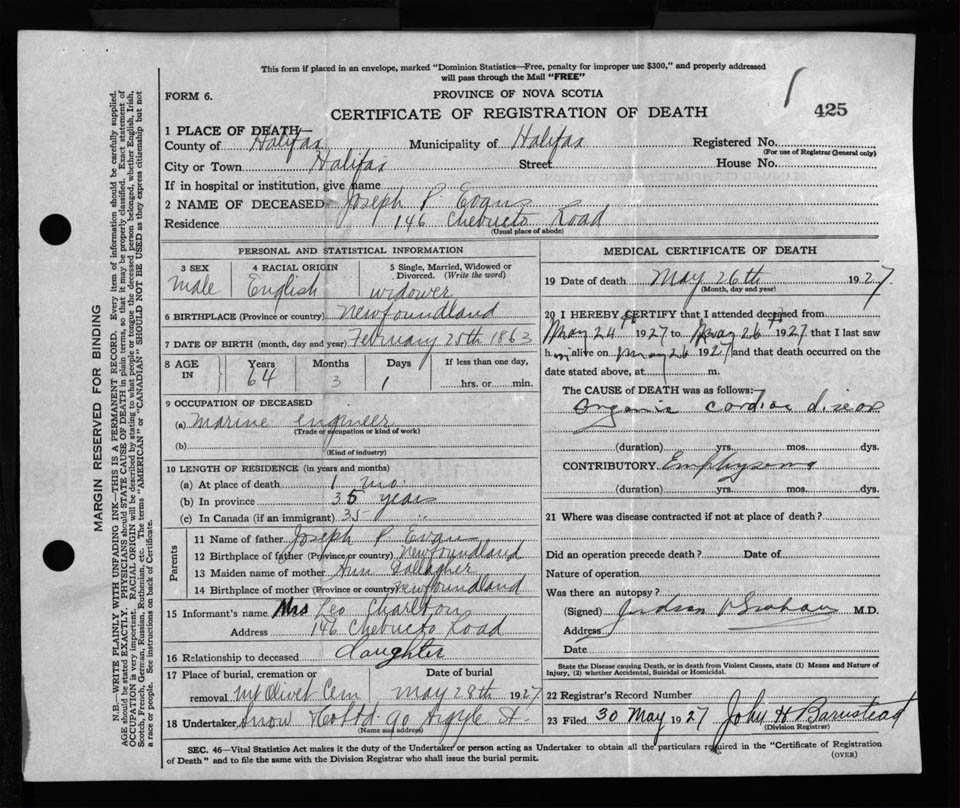 This form if placed in an envelope, marked "Dominion Statistics—Free, penalty for improper use $300," and properly addressed
will pass through the Mail "FREE"
FORM 6.
PROVINCE OF NOVA SCOTIA
425
CERTIFICATE OF REGISTRATION OF DEATH
1 PLACE OF DEATH—
County of Halifax Municipality of Halifax Registered No.
(For use of Registrar General only)
City or Town Halifax Street House No.
If in hospital or institution, give name
2 NAME OF DECEASED Joseph P. Evans
Residence 146 Chebucto Road
(Usual place of abode)
PERSONAL AND STATISTICAL INFORMATION
3 SEX 4 RACIAL ORIGIN 5 Single, Married, Widowed or
Divorced. (Write the word)
Male English widower
6 BIRTHPLACE (Province or country) Newfoundland
7 DATE OF BIRTH (month, day and year) February 25th 1863
8 AGE IN Years Months Days If less than one day,
64 3 1 hrs. or min.
9 OCCUPATION OF DECEASED
(a) Marine engineer
(Trade or occupation or kind of work)
(b)
(Kind of industry)
10 LENGTH OF RESIDENCE (in years and months)
(a) At place of death 1 mo.
(b) In province 35 years
(c) In Canada (if an immigrant) 35 "
Parents
11 Name of father Joseph P. Evans
12 Birthplace of father (Province or country) Newfoundland
13 Maiden name of mother Ann Gallagher
14 Birthplace of mother (Province or country) Newfoundland
15 Informant's name Mrs Leo Charlton
Address 146 Chebucto Road
16 Relationship to deceased daughter
17 Place of burial, cremation or Date of burial
removal Mt Olivet Cem May 28th 1927
18 Undertaker Snow & Co Ltd 90 Argyle St.
(Name and address)
MEDICAL CERTIFICATE OF DEATH
19 Date of death May 26th 1927
(Month, day and year)
20 I HEREBY CERTIFY that I attended deceased from
May 24th 1927 to May 26th 1927 that I last saw
him alive on May 26 1927 and that death occurred on the
date stated above, at m.
The CAUSE of DEATH was as follows:
Organic cardiac disease
(duration) yrs. mos. dys.
CONTRIBUTORY Emphysema
(duration) yrs. mos. dys.
21 Where was disease contracted if not at place of death?
Did an operation precede death? Date of
Nature of operation
Was there an autopsy?
(Signed) Judson V Graham M.D.
Address
Date
State the Disease causing Death, or in death from Violent Causes, state (1) Means and Nature of
Injury, (2) whether Accidental, Suicidal or Homicidal.
22 Registrar's Record Number
23 Filed 30 May 1927 John H Barnstead
(Division Registrar)
SEC. 46—Vital Statistics Act makes it the duty of the Undertaker or person acting as Undertaker to obtain all the particulars required in the "Certificate of Registration
of Death" and to file the same with the Division Registrar who shall issue the burial permit.
(OVER)
MARGIN RESERVED FOR BINDING
N.B.—WRITE PLAINLY WITH UNFADING INK—THIS IS A PERMANENT RECORD. Every item of information should be carefully supplied.
AGE should be stated EXACTLY. PHYSICIANS should STATE CAUSE OF DEATH in plain terms, so that it may be properly classified. Exact statement of
OCCUPATION is very important. RACIAL ORIGIN will be described by stating to what people or tongue the deceased person belonged, whether English, Irish,
Scotch, French, German, Russian, Ruthenian, etc. The terms "AMERICAN" or "CANADIAN" SHOULD NOT BE USED as they express citizenship but not
a race or people. See instructions on back of Certificate.